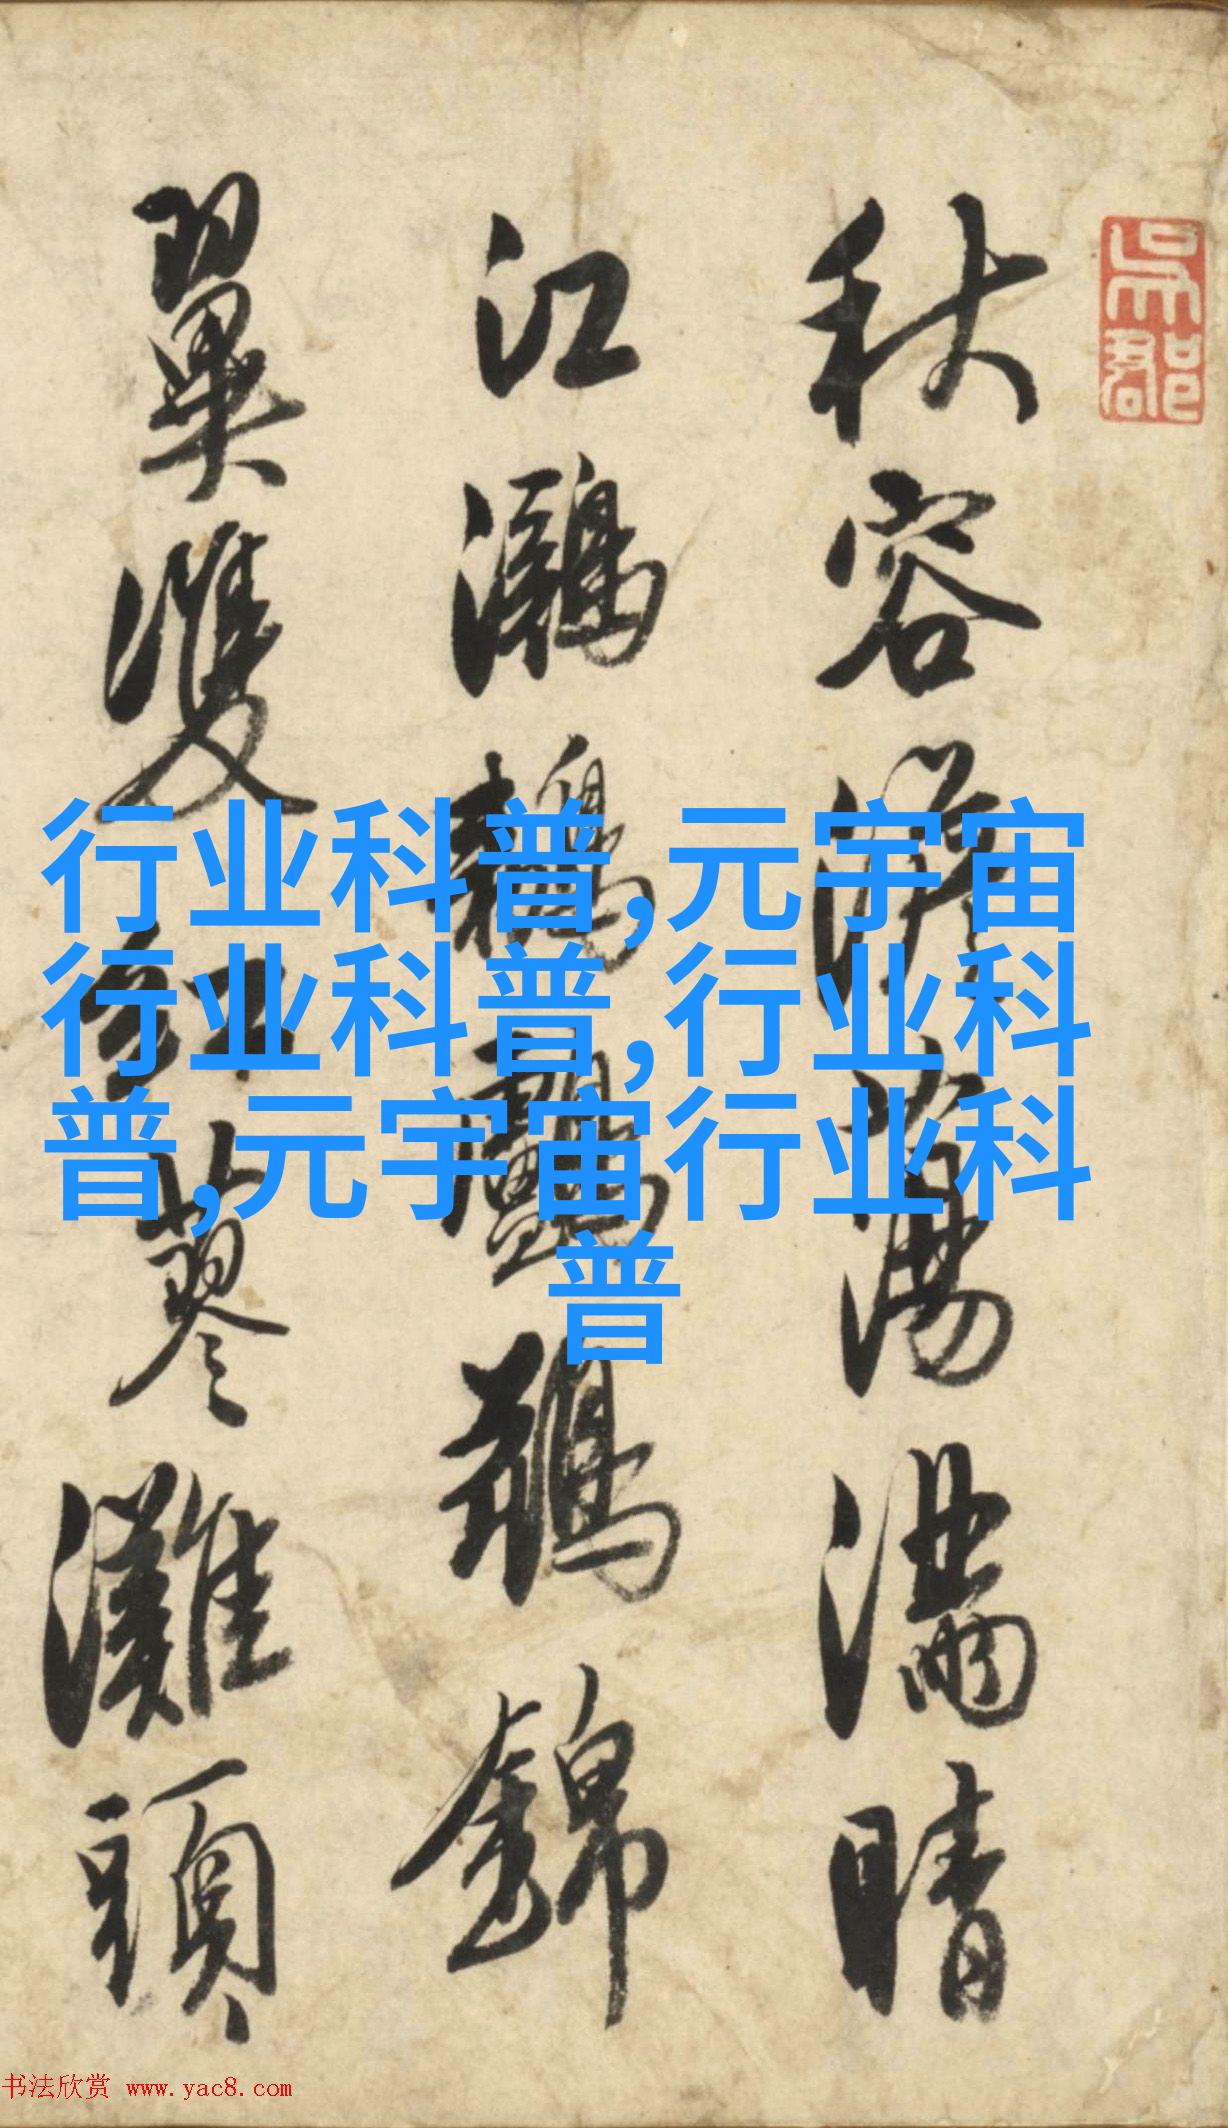 吳郡
秋容蕩滿晴
江鸂鶒鸕鷀錦
翼雙紅蓼灘頭
行业科普,元宇宙
行业科普,行业科
普,元宇宙行业科
普
书法欣赏 www.yac8.com